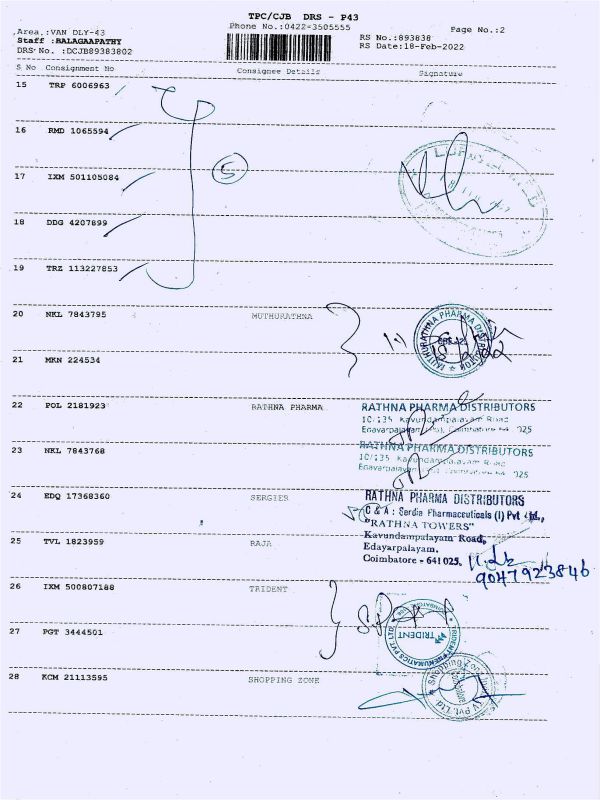 TPC/CJB DRS - P43
Phone No.:0422-3505555
Page No.:2
Area.:VAN DLY-43
Staff :BALAGAAPATHY
DRS No. :DCJB89383802
RS No.:893838
RS Date:18-Feb-2022
S No Consignment No Consignee Details Signature
15 TRP 6006963
16 RMD 1065594
17 IXM 501105084
18 DDG 4207899
19 TRZ 113227853
5
20 NKL 7843795 MUTHURATHNA
MUTHURATHNA PHARMA DISTRIBUTOR
21 MKN 224534
22 POL 2181923 RATHNA PHARMA
RATHNA PHARMA DISTRIBUTORS
10/135 Kavundampalayam Road
23 NKL 7843768
RATHNA PHARMA DISTRIBUTORS
10/135 Kavundampalayam Road
24 EDQ 17368360 SERGIER
RATHNA PHARMA DISTRIBUTORS
C & A : Serdia Pharmaceuticals (I) Pvt Ltd.,
"RATHNA TOWERS"
Kavundampalayam Road,
Edayarpalayam,
Coimbatore - 641 025.
9047923846
25 TVL 1823959 RAJA
26 IXM 500807188 TRIDENT
27 PGT 3444501
TRIDENT PNEUMATICS PVT. LTD.
TRIDENT
28 KCM 21113595 SHOPPING ZONE